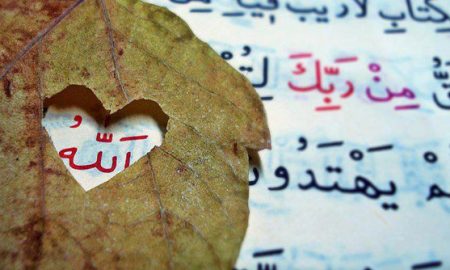 كِتَابِ لَا رَيْبَ فِيهِ
مِنْ رَبِّكَ
اَللّٰهُ
يَهْتَدُونَ